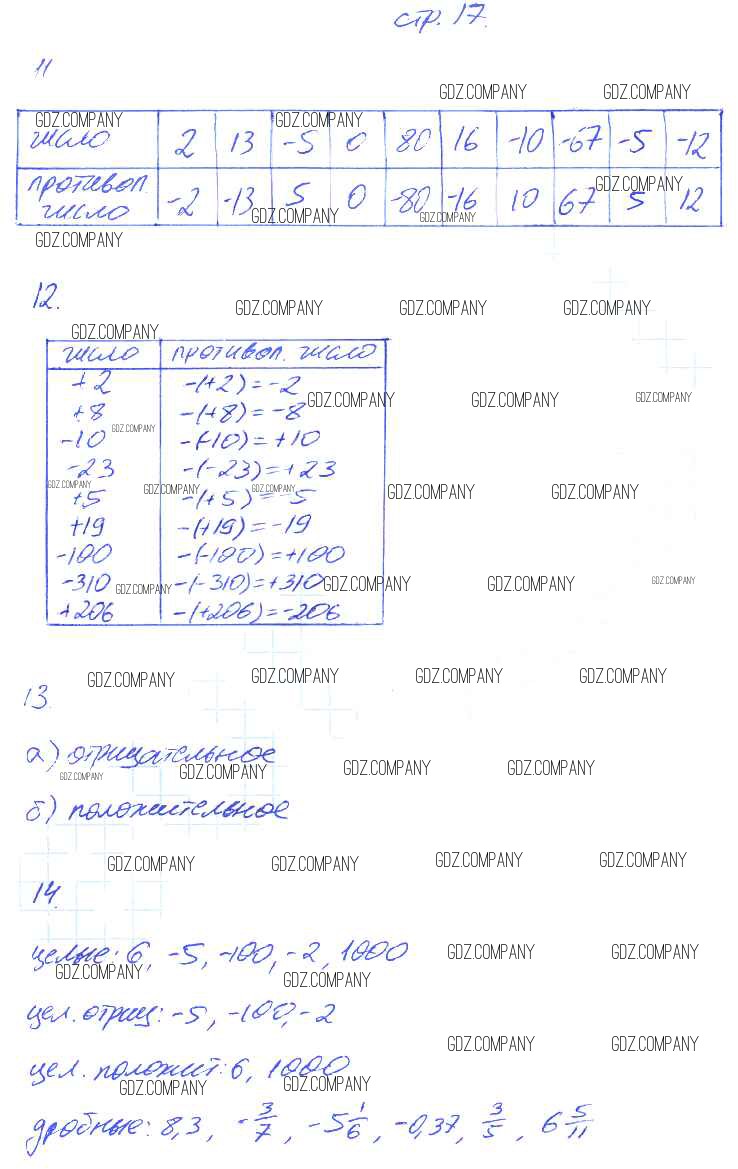 стр. 17.
11
GDZ.COMPANY GDZ.COMPANY
GDZ.COMPANY GDZ.COMPANY
число 2 13 -5 0 80 16 -10 -67 -5 -12
противоп. число -2 -13 5 0 -80 -16 10 67 5 12
GDZ.COMPANY GDZ.COMPANY GDZ.COMPANY
GDZ.COMPANY
12.
GDZ.COMPANY GDZ.COMPANY GDZ.COMPANY
GDZ.COMPANY
число противоп. число
+2 -(+2) = -2
GDZ.COMPANY GDZ.COMPANY GDZ.COMPANY
+8 -(+8) = -8
GDZ.COMPANY
-10 -(-10) = +10
-23 -(-23) = +23
GDZ.COMPANY GDZ.COMPANY GDZ.COMPANY GDZ.COMPANY GDZ.COMPANY
+5 -(+5) = -5
+19 -(+19) = -19
-100 -(-100) = +100
-310 -(-310) = +310
GDZ.COMPANY GDZ.COMPANY GDZ.COMPANY GDZ.COMPANY
+206 -(+206) = -206
GDZ.COMPANY GDZ.COMPANY GDZ.COMPANY GDZ.COMPANY
13.
а) отрицательное
GDZ.COMPANY GDZ.COMPANY GDZ.COMPANY GDZ.COMPANY
б) положительное
GDZ.COMPANY GDZ.COMPANY GDZ.COMPANY GDZ.COMPANY
14.
целые: 6, -5, -100, -2, 1000
GDZ.COMPANY GDZ.COMPANY GDZ.COMPANY GDZ.COMPANY
цел. отриц: -5, -100, -2
GDZ.COMPANY GDZ.COMPANY
цел. положит: 6, 1000
GDZ.COMPANY GDZ.COMPANY
дробные: 8,3, -3/7, -5 1/6, -0,37, 3/5, 6 5/11